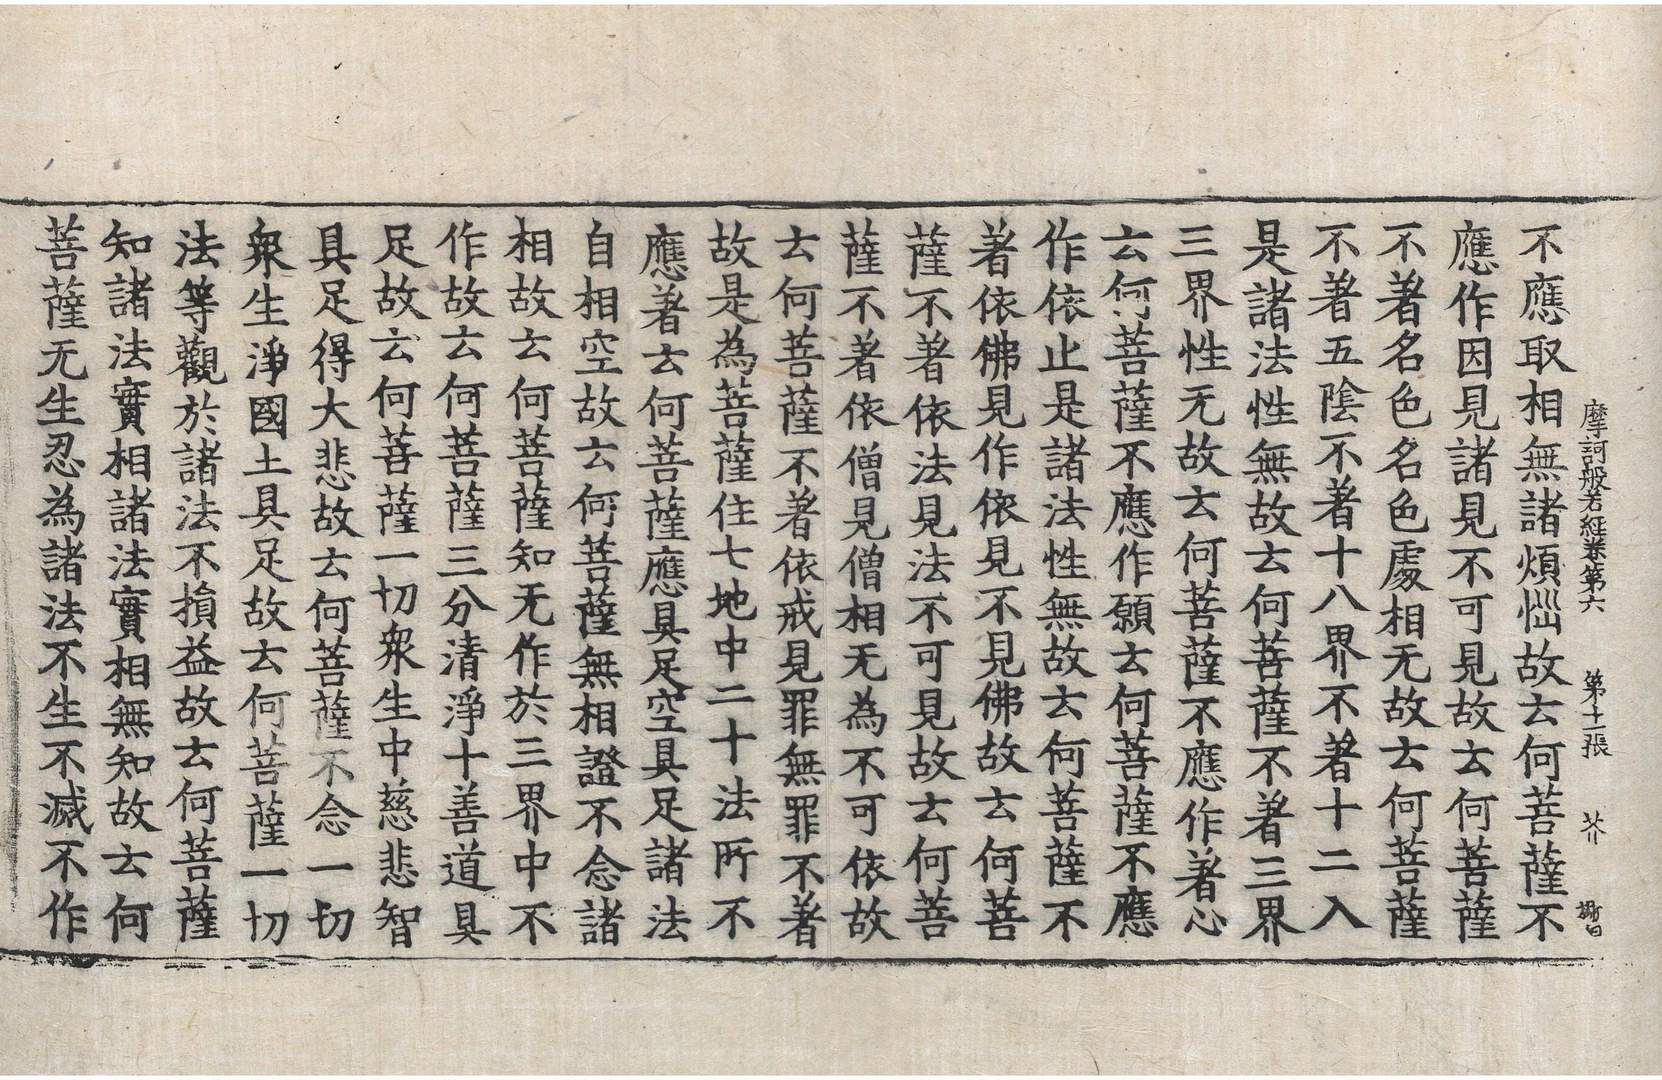 摩訶般若經卷第六 第十二張 芥
不應取相無諸煩惱故去何菩薩不
應作因見諸見不可見故去何菩薩
不著名色名色處相无故去何菩薩
不著五陰不著十八界不著十二入
是諸法性無故去何菩薩不著三界
三界性无故去何菩薩不應作著心
去何菩薩不應作願去何菩薩不應
作依止是諸法性無故去何菩薩不
著依佛見作依見不見佛故去何菩
薩不著依法見法不可見故去何菩
薩不著依僧見僧相无為不可依故
去何菩薩不著依戒見罪無罪不著
故是為菩薩住七地中二十法所不
應著去何菩薩應具足空具足諸法
自相空故去何菩薩無相證不念諸
相故去何菩薩知无作於三界中不
作故去何菩薩三分清淨十善道具
足故去何菩薩一切衆生中慈悲智
具足得大悲故去何菩薩不念一切
衆生淨國土具足故去何菩薩一切
法等觀於諸法不損益故去何菩薩
知諸法實相諸法實相無知故去何
菩薩无生忍為諸法不生不滅不作